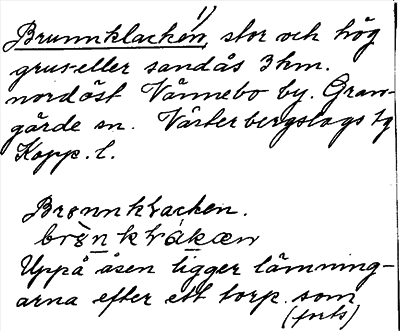 Brunnklacken, 1) stor och hög
grus-eller sandås 3 km.
nordöst Vännebo by. Gran-
gärde sn. Västerbergslags tg
Kopp. l.
Brønnkłacken.
Uppå åsen ligger lämning-
arna efter ett torp. som
(forts)